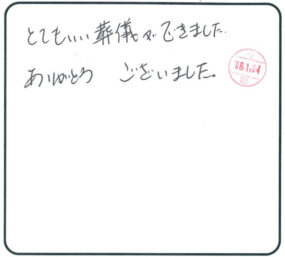 とてもいい葬儀ができました。
ありがとう　ございました。